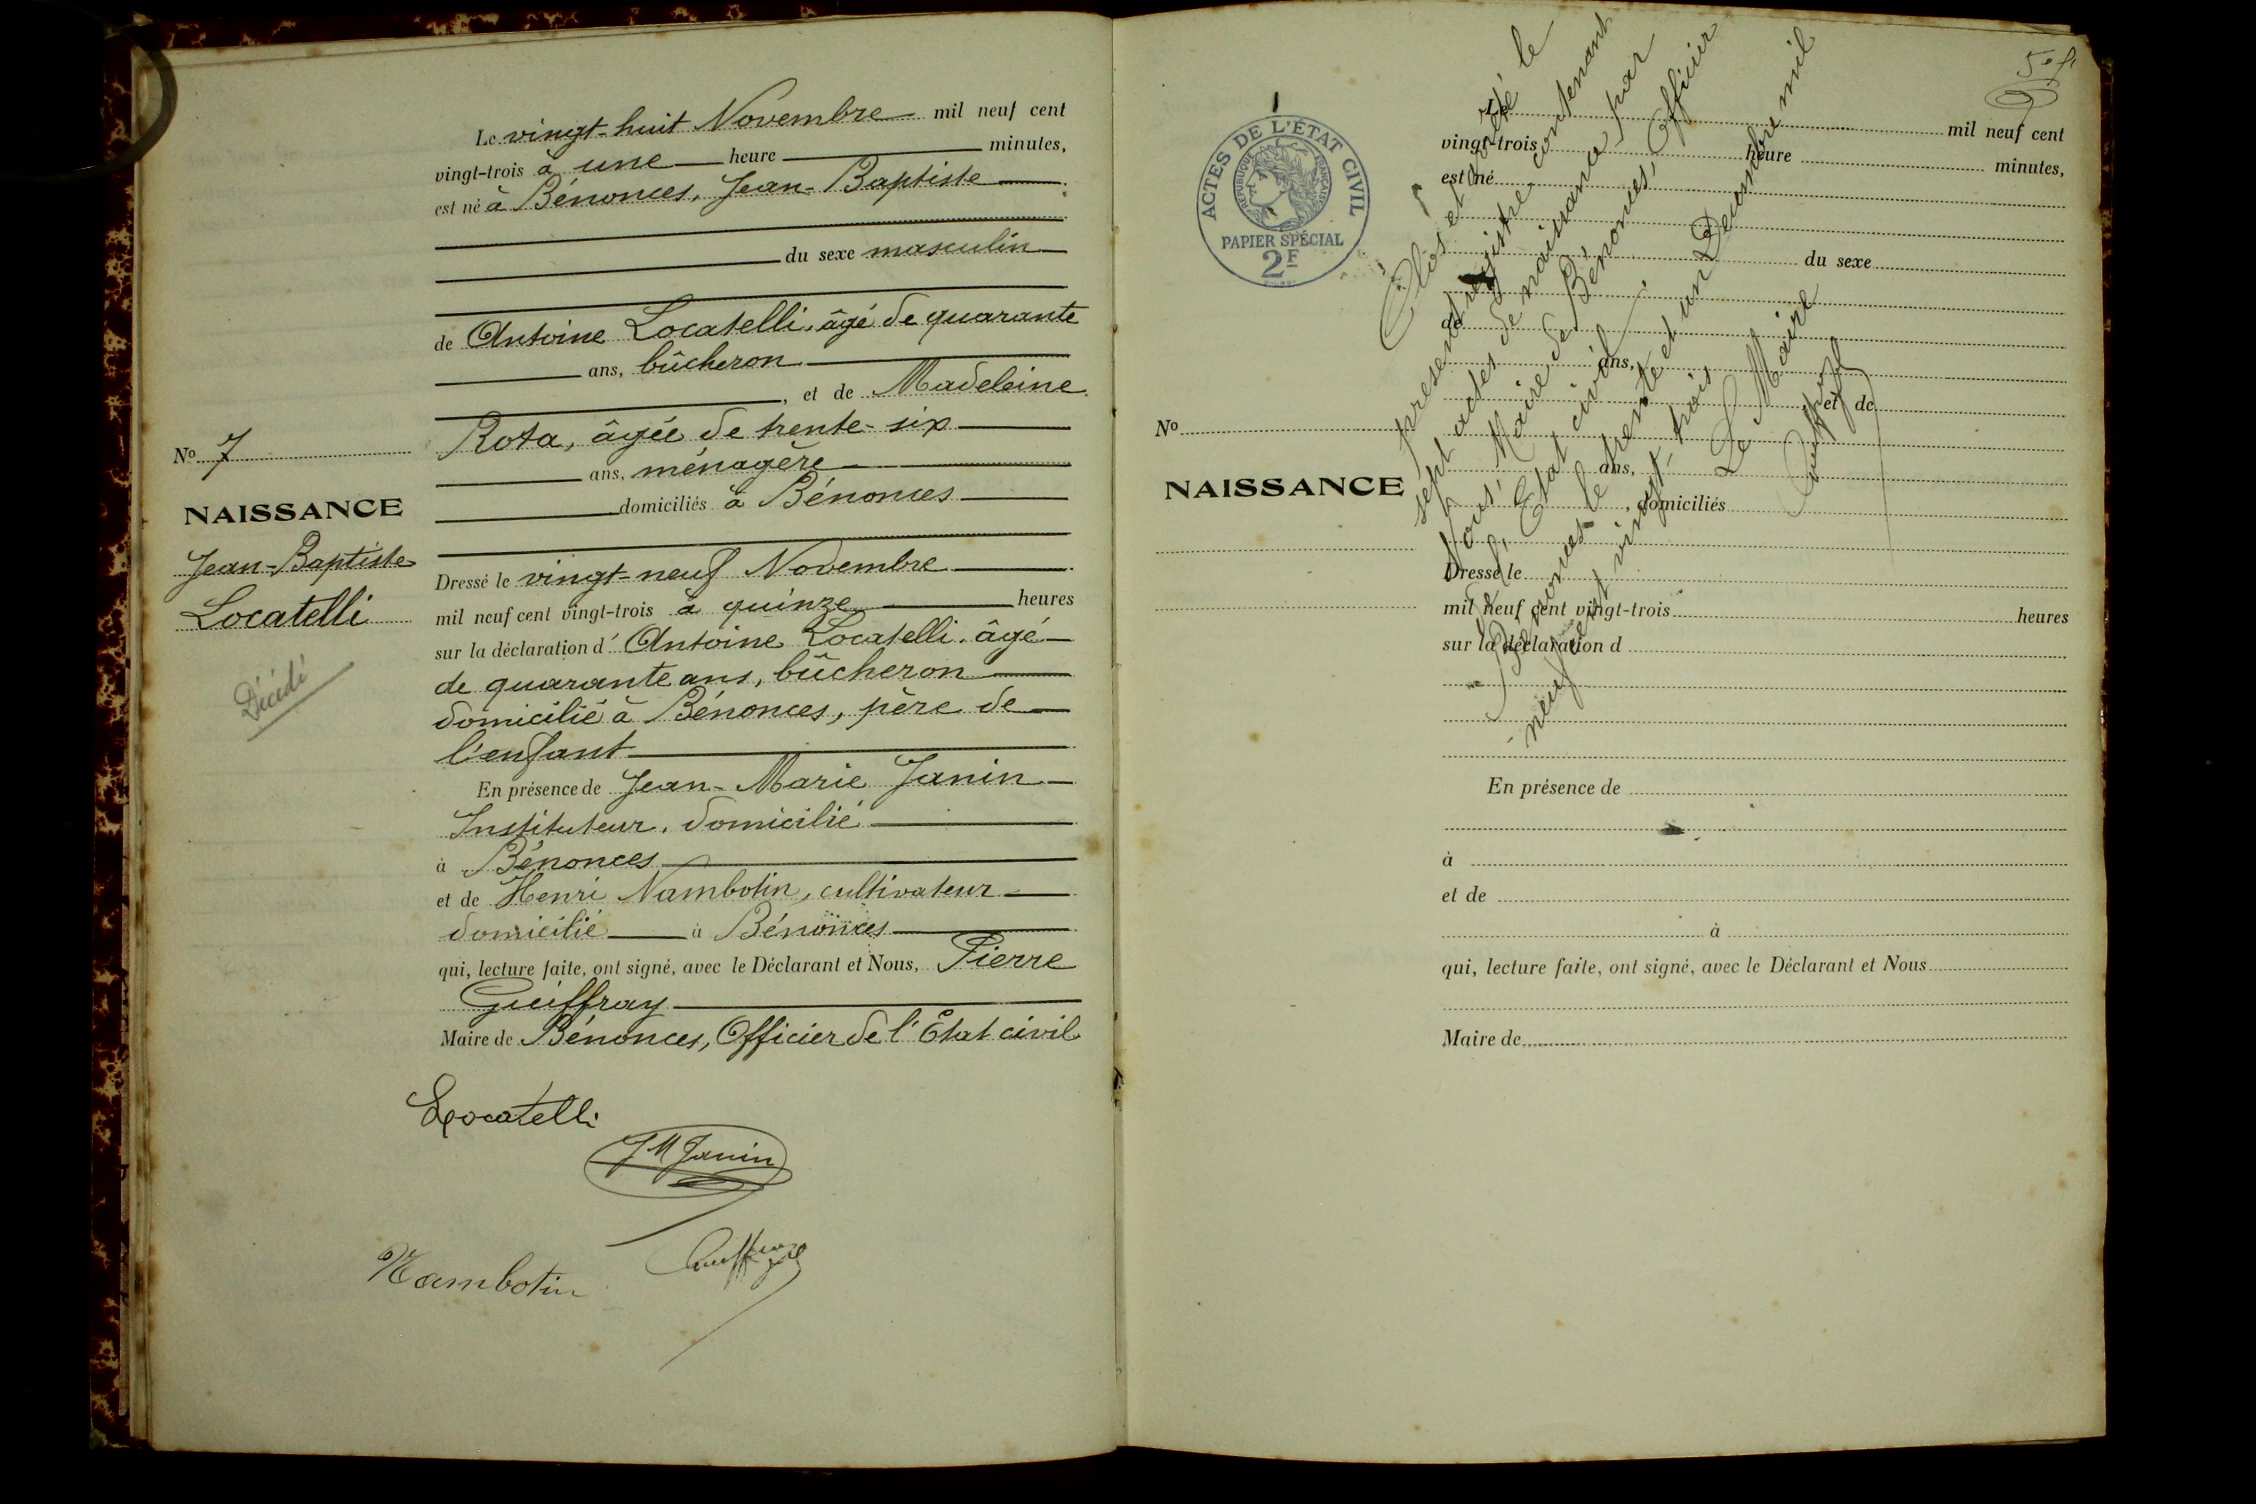 Le vingt-huit Novembre mil neuf cent
vingt-trois à une heure minutes,
est né à Bénonces, Jean-Baptiste
du sexe masculin
de Antoine Locatelli, âgé de quarante
ans, bûcheron
, et de Madeleine
Rota, âgée de trente-six
ans, ménagère
domiciliés à Bénonces
No 7
NAISSANCE
Jean-Baptiste
Locatelli
Décédé
Dressé le vingt-neuf Novembre
mil neuf cent vingt-trois à quinze heures
sur la déclaration d' Antoine Locatelli, âgé
de quarante ans, bûcheron
domicilié à Bénonces, père de
l'enfant
En présence de Jean-Marie Janin
Instituteur, domicilié
à Bénonces
et de Henri Nambotin, cultivateur
domicilié à Bénonces
qui, lecture faite, ont signé, avec le Déclarant et Nous, Pierre
Guiffray
Maire de Bénonces, Officier de l'Etat civil
Locatelli
JM Janin
Nambotin
Guiffray
ACTES DE L'ÉTAT CIVIL
RÉPUBLIQUE FRANÇAISE
PAPIER SPÉCIAL
2F
Le mil neuf cent
vingt-trois heure minutes,
est né
du sexe
de
ans,
et de
No
ans,
NAISSANCE
, domiciliés
Dressé le
mil neuf cent vingt-trois heures
sur la déclaration d
En présence de
à
et de
à
qui, lecture faite, ont signé, avec le Déclarant et Nous
Maire de
Clos et arrêté le
présent registre contenant
sept actes de naissance par
Nous, Maire de Bénonces, Officier
de l'Etat civil.
à Bénonces le trente et un Décembre mil
neuf cent vingt-trois
Le Maire
Guiffray